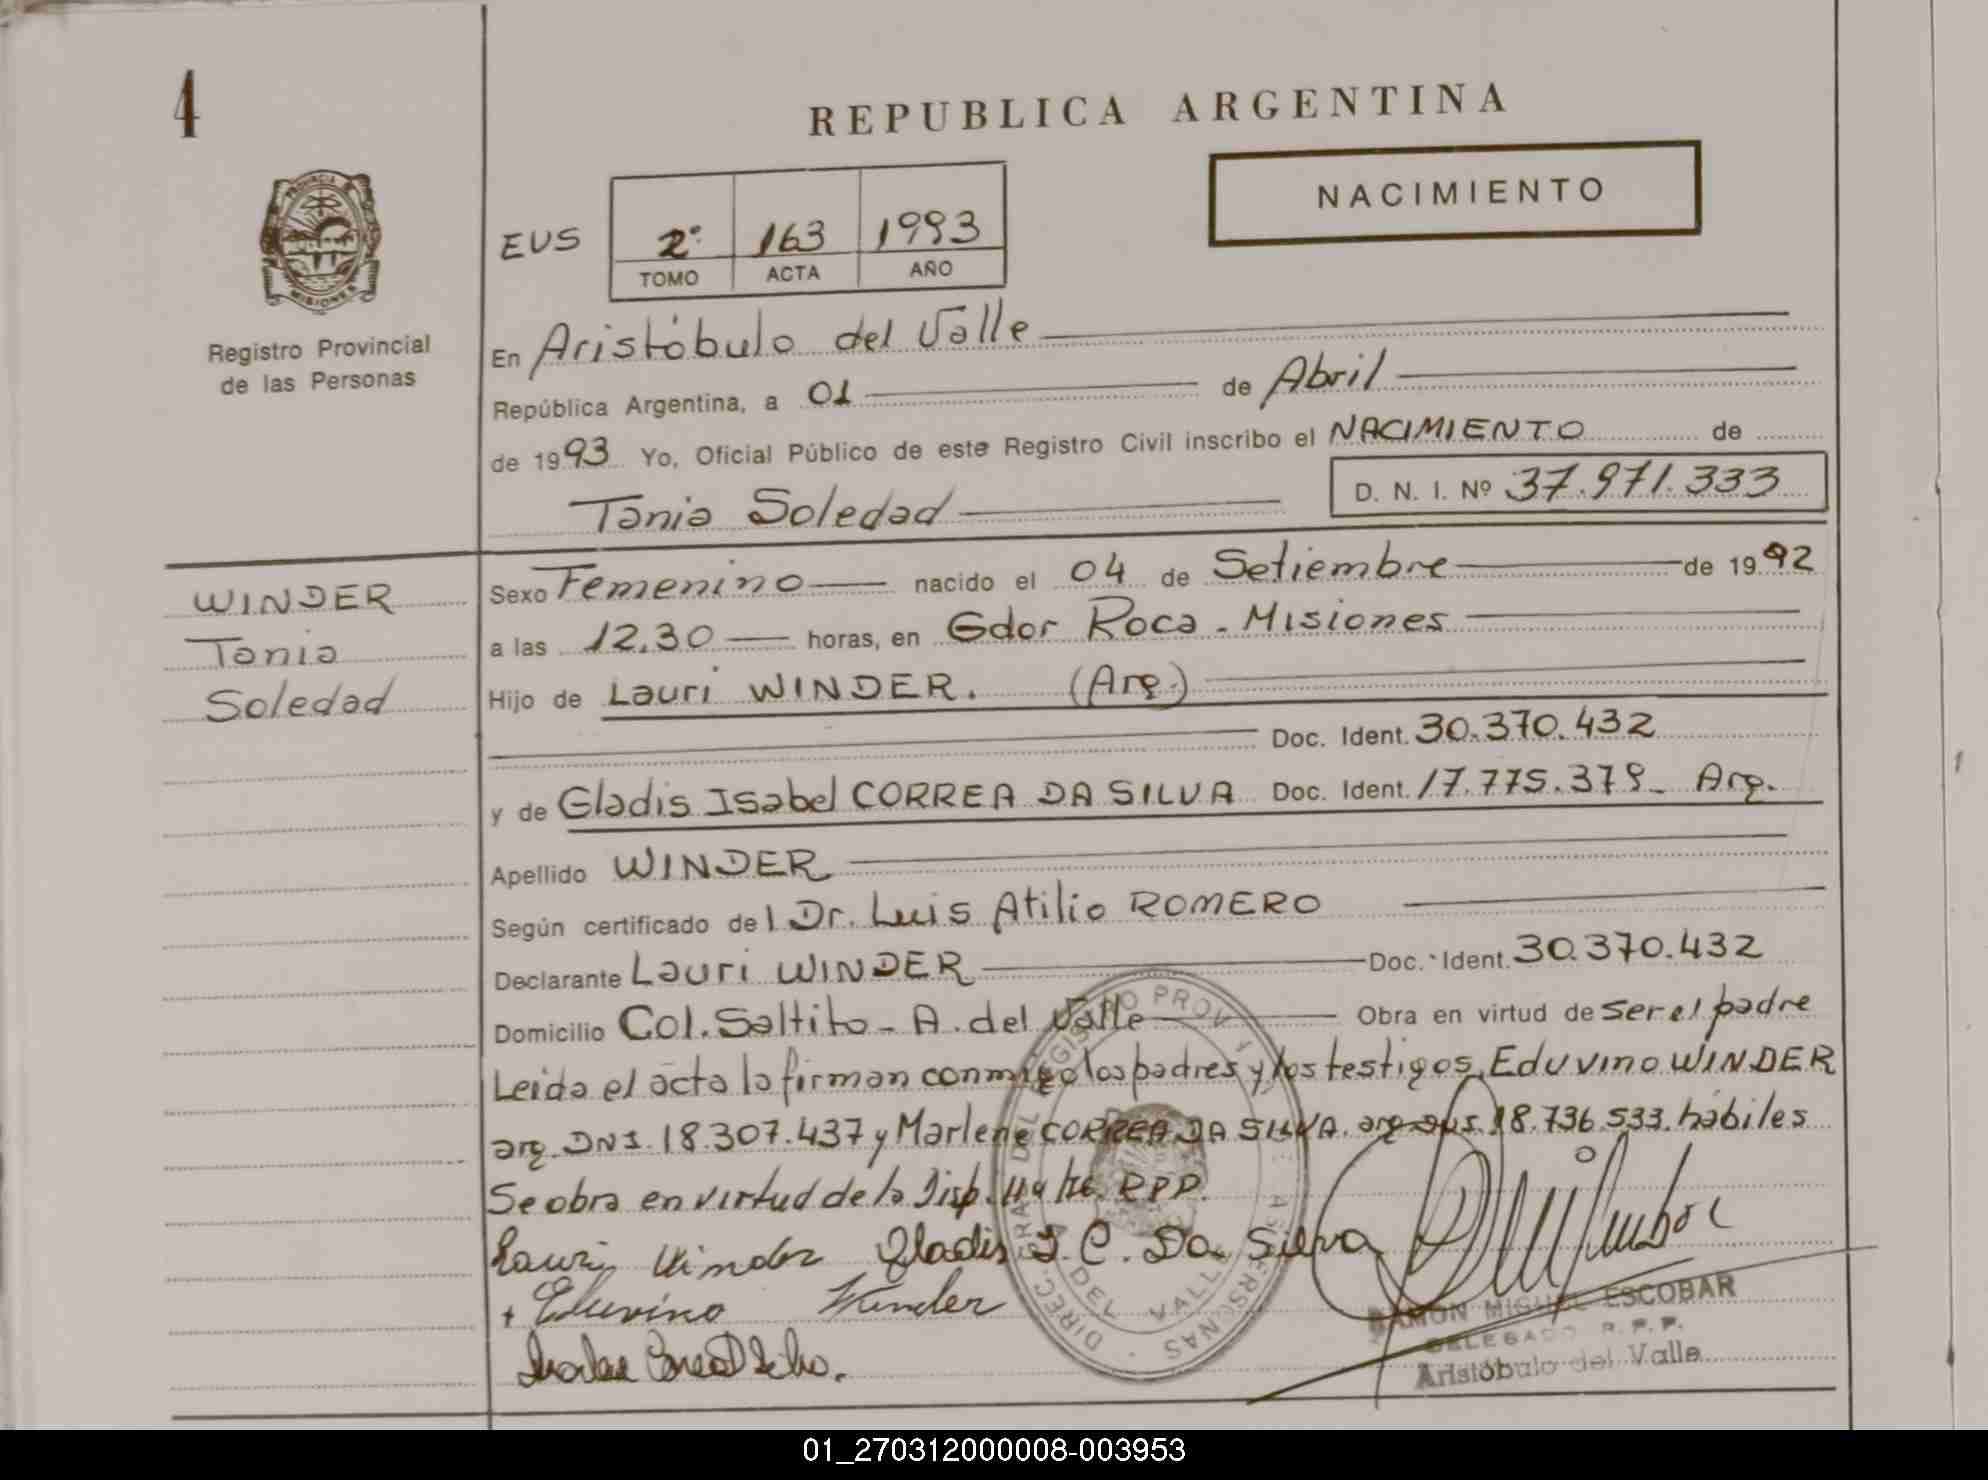 4
REPUBLICA ARGENTINA
NACIMIENTO
PROVINCIA DE
MISIONES
Registro Provincial
de las Personas
EUS 2º 163 1993
TOMO ACTA AÑO
En Aristóbulo del Valle
República Argentina, a 01 de Abril
de 1993 Yo, Oficial Público de este Registro Civil inscribo el NACIMIENTO de
Tania Soledad D. N. I. Nº 37.971.333
WINDER
Tania
Soledad
Sexo Femenino nacido el 04 de Setiembre de 1992
a las 12.30 horas, en Gdor Roca - Misiones
Hijo de Lauri WINDER. (Arg.)
Doc. Ident. 30.370.432
y de Gladis Isabel CORREA DA SILVA Doc. Ident. 17.775.379_ Arg.
Apellido WINDER
Según certificado del Dr. Luis Atilio ROMERO
Declarante Lauri WINDER Doc. Ident. 30.370.432
Domicilio Col. Saltito - A. del Valle Obra en virtud de ser el padre
Leida el acta la firman conmigo los padres y los testigos Eduvino WINDER
arg. DNI. 18.307.437 y Marlene CORREA DA SILVA. arg 18.736.533. hábiles
Se obra en virtud de la Disp. RPP.
Lauri Winder Gladis I. C. Da Silva
Eduvino Winder
RAMON MIGUEL ESCOBAR
DELEGADO R.P.P.
Aristóbulo del Valle
01_270312000008-003953